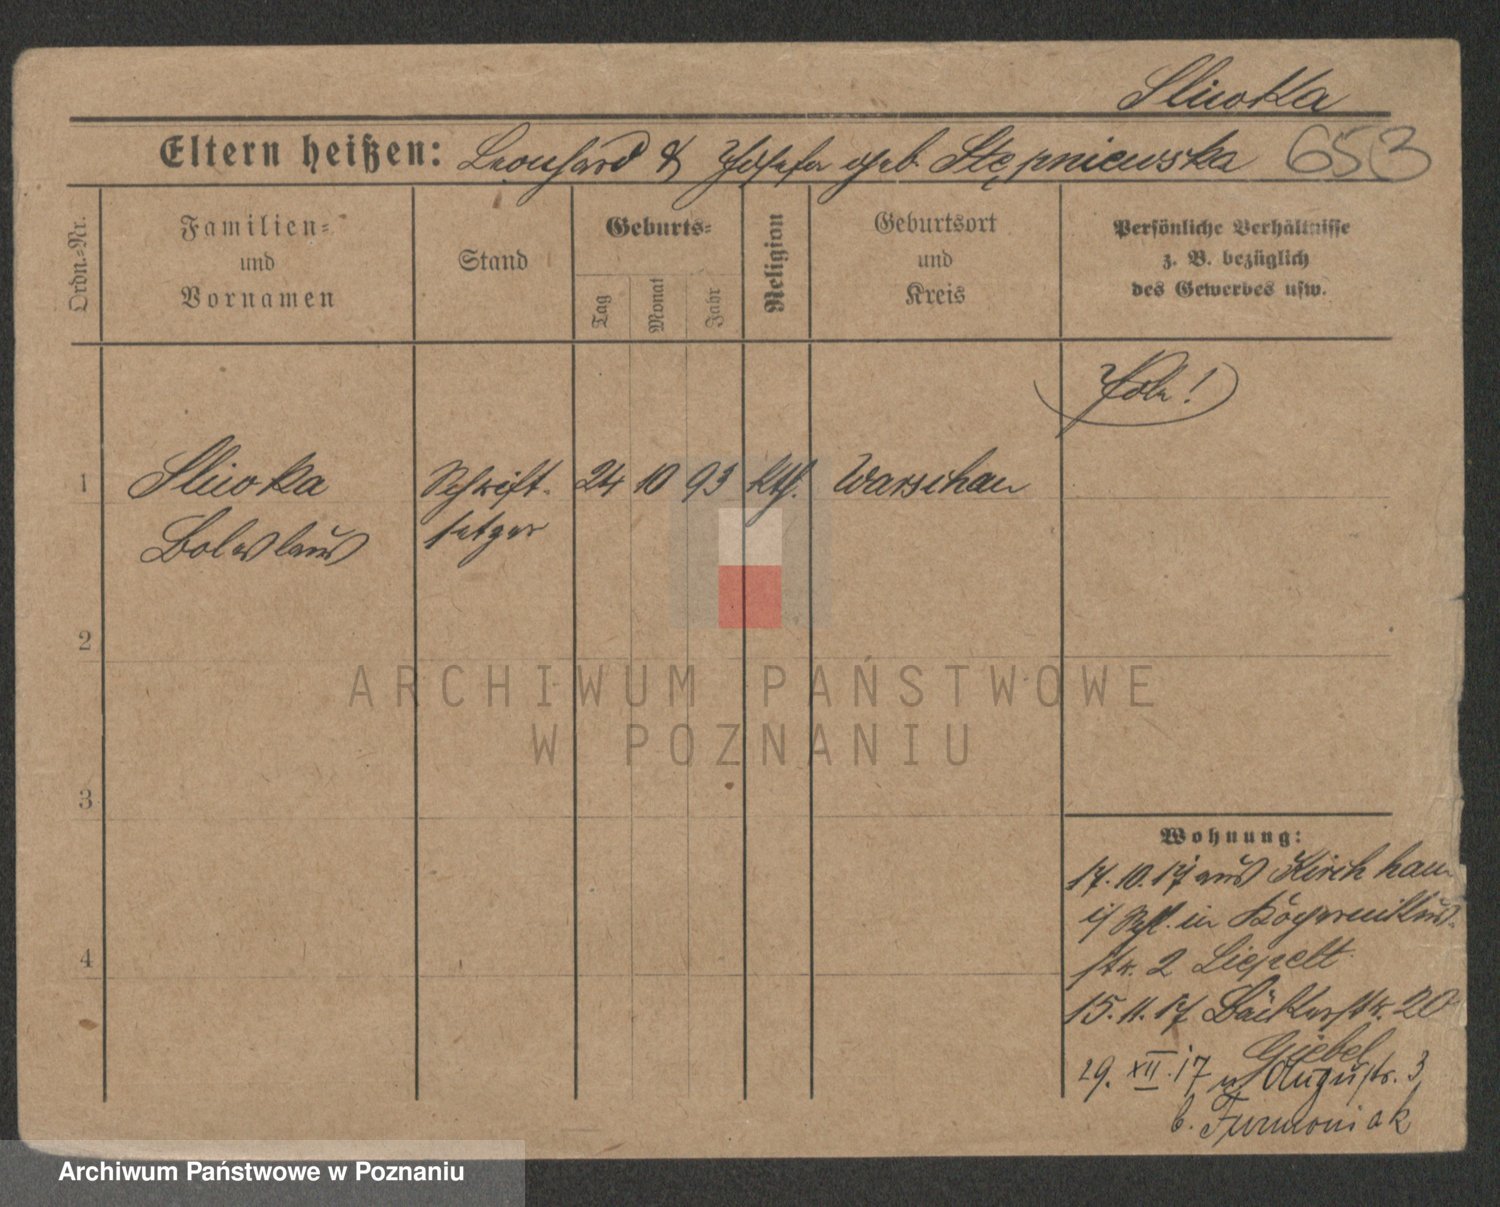 Sliwoka
Eltern heißen: Leonhard & Josefa geb. Stępniewska 653
Ordn.-Nr.
Familien-
und
Vornamen
Stand
Geburts-
Tag
Monat
Jahr
Religion
Geburtsort
und
Kreis
Persönliche Verhältnisse
z. B. bezüglich
des Gewerbes usw.
Pole!
1 Sliwoka Schrift- 24 10 93 kth. Warschau
Boleslaus setzer
2
ARCHIWUM PAŃSTWOWE
W POZNANIU
3
Wohnung:
17.10.17 aus Kirchhain
in
4
str. 2 Liepelt
15.11.17 Bäckerstr. 20
Giebel
29. XII. 17 n Augustr. 3
b. Furmoniak
Archiwum Państwowe w Poznaniu